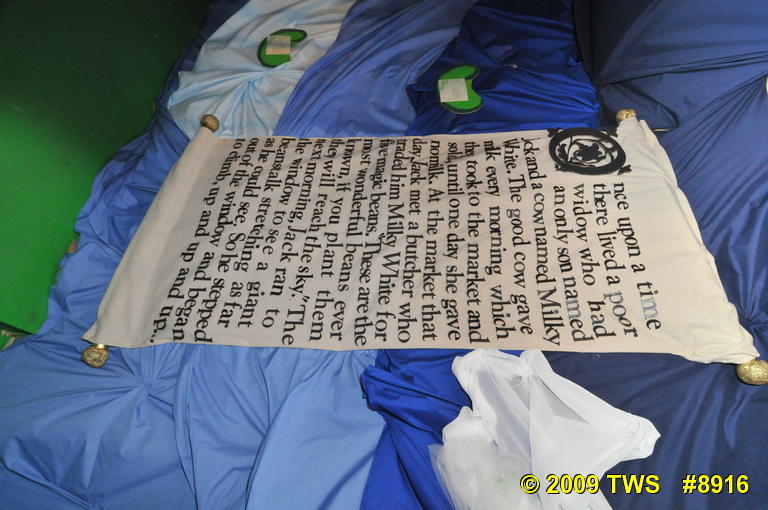 nce upon a time
there lived a poor
widow who had
an only son named
Jack and a cow named Milky
White. The good cow gave
milk every morning which
they took to the market and
sold, until one day she gave
no milk. At the market that
day, Jack met a butcher who
traded him Milky White for
five magic beans. "These are the
most wonderful beans ever
known, if you plant them
they will reach the sky." The
next morning, Jack ran to
the window to see a giant
beanstalk stretching as far
as he could see. So he stepped
out of the window and began
to climb up and up and up...
© 2009 TWS #8916